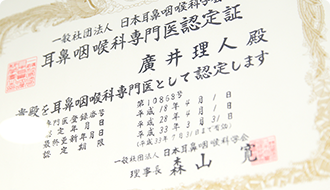 一般社団法人 日本耳鼻咽喉科学会
耳鼻咽喉科専門医認定証
廣井理人 殿
貴殿を耳鼻咽喉科専門医として認定します
専門医登録番号 第10868号
認定年月日 平成18年4月1日
最終更新年月日 平成28年4月1日
認定期限 平成33年3月31日
(平成33年7月31日まで有効)
一般社団法人 日本耳鼻咽喉科学会
理事長 森山 寛